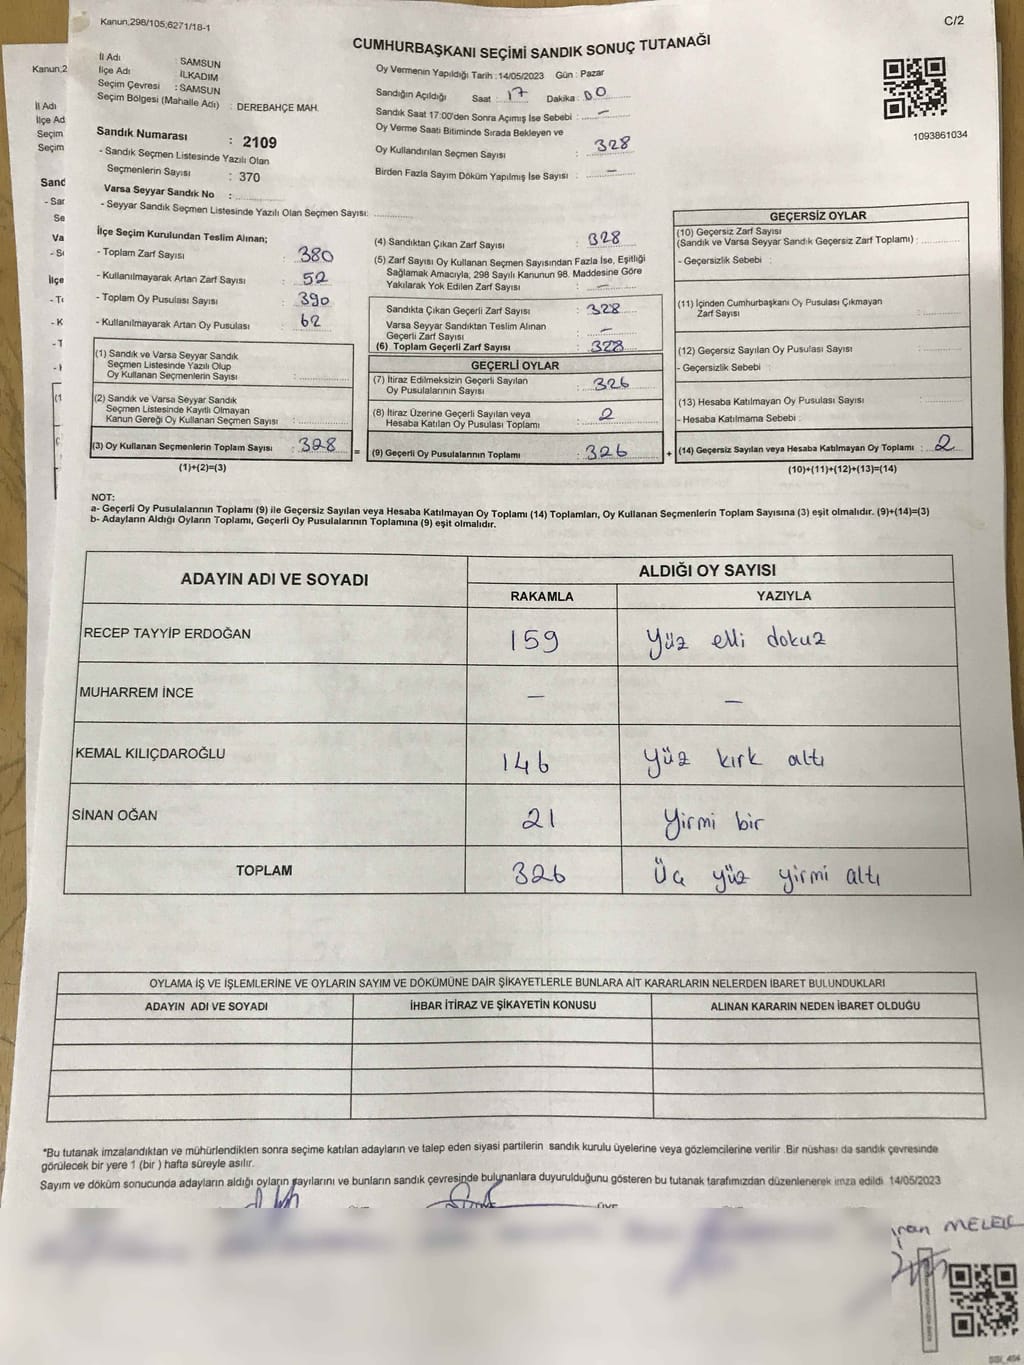 Kanun;298/105;6271/18-1
C/2
CUMHURBAŞKANI SEÇİMİ SANDIK SONUÇ TUTANAĞI
İl Adı : SAMSUN
İlçe Adı : İLKADIM
Seçim Çevresi : SAMSUN
Seçim Bölgesi (Mahalle Adı) : DEREBAHÇE MAH.
Sandık Numarası : 2109
- Sandık Seçmen Listesinde Yazılı Olan
Seçmenlerin Sayısı : 370
Varsa Seyyar Sandık No :
- Seyyar Sandık Seçmen Listesinde Yazılı Olan Seçmen Sayısı:
Oy Vermenin Yapıldığı Tarih : 14/05/2023 Gün : Pazar
Sandığın Açıldığı Saat : 17 Dakika : 00
Sandık Saat 17:00'den Sonra Açımış İse Sebebi : -
Oy Verme Saati Bitiminde Sırada Bekleyen ve
Oy Kullandırılan Seçmen Sayısı : 328
Birden Fazla Sayım Döküm Yapılmış İse Sayısı : -
1093861034
İlçe Seçim Kurulundan Teslim Alınan;
- Toplam Zarf Sayısı : 380
- Kullanılmayarak Artan Zarf Sayısı : 52
- Toplam Oy Pusulası Sayısı : 390
- Kullanılmayarak Artan Oy Pusulası : 62
(1) Sandık ve Varsa Seyyar Sandık
Seçmen Listesinde Yazılı Olup
Oy Kullanan Seçmenlerin Sayısı :
(2) Sandık ve Varsa Seyyar Sandık
Seçmen Listesinde Kayıtlı Olmayan
Kanun Gereği Oy Kullanan Seçmen Sayısı :
(3) Oy Kullanan Seçmenlerin Toplam Sayısı : 328
(1)+(2)=(3)
=
(4) Sandıktan Çıkan Zarf Sayısı : 328
(5) Zarf Sayısı Oy Kullanan Seçmen Sayısından Fazla İse, Eşitliği
Sağlamak Amacıyla, 298 Sayılı Kanunun 98. Maddesine Göre
Yakılarak Yok Edilen Zarf Sayısı : -
Sandıkta Çıkan Geçerli Zarf Sayısı : 328
Varsa Seyyar Sandıktan Teslim Alınan
Geçerli Zarf Sayısı : -
(6) Toplam Geçerli Zarf Sayısı : 328
GEÇERLİ OYLAR
(7) İtiraz Edilmeksizin Geçerli Sayılan
Oy Pusulalarının Sayısı : 326
(8) İtiraz Üzerine Geçerli Sayılan veya
Hesaba Katılan Oy Pusulası Toplamı : 2
(9) Geçerli Oy Pusulalarının Toplamı : 326
+
GEÇERSİZ OYLAR
(10) Geçersiz Zarf Sayısı
(Sandık ve Varsa Seyyar Sandık Geçersiz Zarf Toplamı) :
- Geçersizlik Sebebi :
(11) İçinden Cumhurbaşkanı Oy Pusulası Çıkmayan
Zarf Sayısı :
(12) Geçersiz Sayılan Oy Pusulası Sayısı :
- Geçersizlik Sebebi :
(13) Hesaba Katılmayan Oy Pusulası Sayısı :
- Hesaba Katılmama Sebebi :
(14) Geçersiz Sayılan veya Hesaba Katılmayan Oy Toplamı : 2
(10)+(11)+(12)+(13)=(14)
NOT:
a- Geçerli Oy Pusulalarının Toplamı (9) ile Geçersiz Sayılan veya Hesaba Katılmayan Oy Toplamı (14) Toplamları, Oy Kullanan Seçmenlerin Toplam Sayısına (3) eşit olmalıdır. (9)+(14)=(3)
b- Adayların Aldığı Oyların Toplamı, Geçerli Oy Pusulalarının Toplamına (9) eşit olmalıdır.
ADAYIN ADI VE SOYADI
ALDIĞI OY SAYISI
RAKAMLA YAZIYLA
RECEP TAYYİP ERDOĞAN 159 Yüz elli dokuz
MUHARREM İNCE - -
KEMAL KILIÇDAROĞLU 146 Yüz kırk altı
SİNAN OĞAN 21 Yirmi bir
TOPLAM 326 Üç yüz yirmi altı
OYLAMA İŞ VE İŞLEMLERİNE VE OYLARIN SAYIM VE DÖKÜMÜNE DAİR ŞİKAYETLERLE BUNLARA AİT KARARLARIN NELERDEN İBARET BULUNDUKLARI
ADAYIN ADI VE SOYADI İHBAR İTİRAZ VE ŞİKAYETİN KONUSU ALINAN KARARIN NEDEN İBARET OLDUĞU
*Bu tutanak imzalandıktan ve mühürlendikten sonra seçime katılan adayların ve talep eden siyasi partilerin sandık kurulu üyelerine veya gözlemcilerine verilir. Bir nüshası da sandık çevresinde
görülecek bir yere 1 (bir) hafta süreyle asılır.
Sayım ve döküm sonucunda adayların aldığı oyların sayılarını ve bunların sandık çevresinde bulunanlara duyurulduğunu gösteren bu tutanak tarafımızdan düzenlenerek imza edildi. 14/05/2023